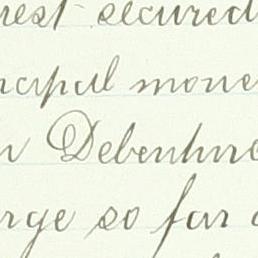 rest secured
ncipal money
n Debenture
rge so far a